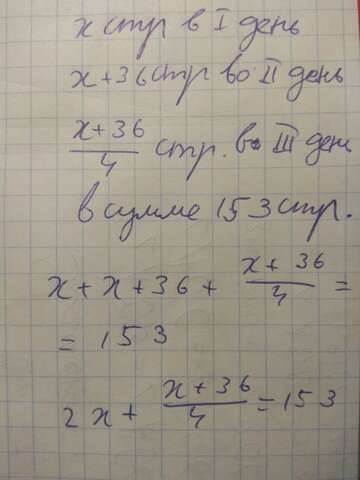 x стр в I день
x+36 стр во II день
x+36/4 стр. во III день
в сумме 153 стр.
x+x+36+ x+36/4 =
= 153
2x+ x+36/4 =153